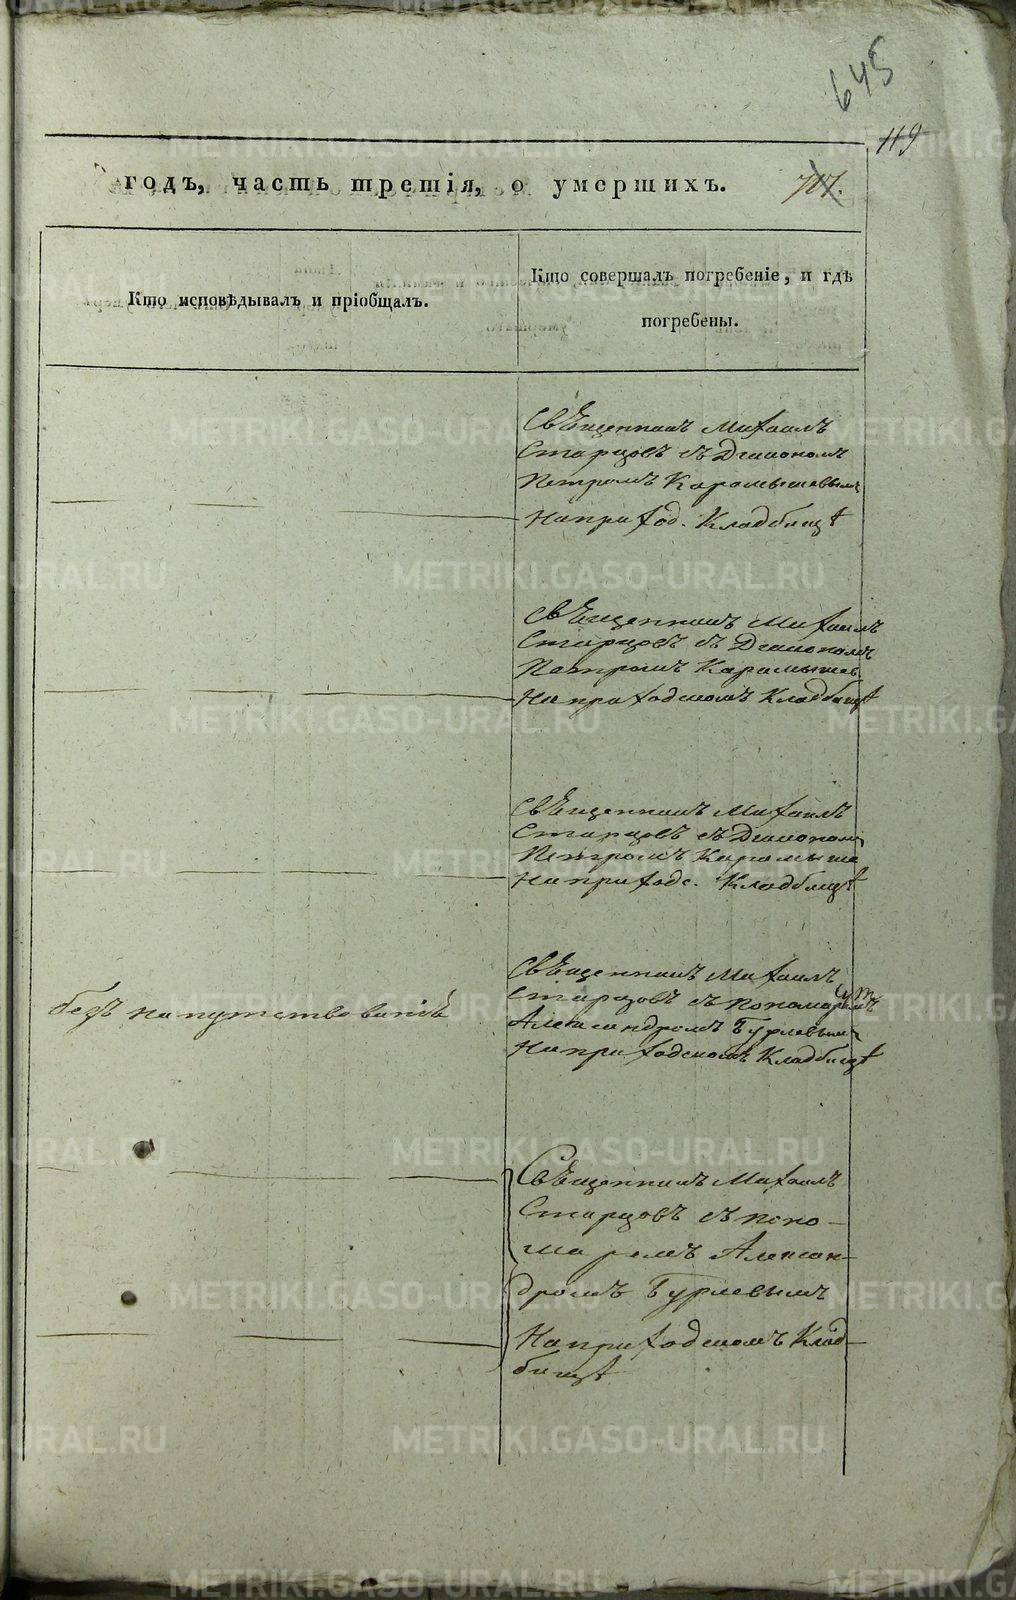 645
119
годъ, часть третія, о умершихъ.
707.
Кто исповѣдывалъ и пріобщалъ.
Кто совершалъ погребеніе, и гдѣ
погребены.
Свѣщенникъ Михаилъ
Старцовъ съ Дьякономъ
Петромъ Карамышевымъ
На приход. Кладбищѣ
Свѣщенникъ Михаилъ
Старцовъ съ Дьякономъ
Петромъ Карамышев.
На приходскомъ Кладбищѣ
Свѣщенникъ Михаилъ
Старцовъ съ Дьякономъ
Петромъ Карамыше
На приходс. Кладбищѣ
безъ напутствованія
Свѣщенникъ Михаилъ
Старцовъ съ пономаремъ
Александромъ Бурлевымъ
На приходскомъ Кладбищѣ
Свѣщенникъ Михаилъ
Старцовъ съ поно-
маремъ Алексан-
дромъ Бурлевымъ
На приходскомъ Клад-
бищѣ
METRIKI.GASO-URAL.RU